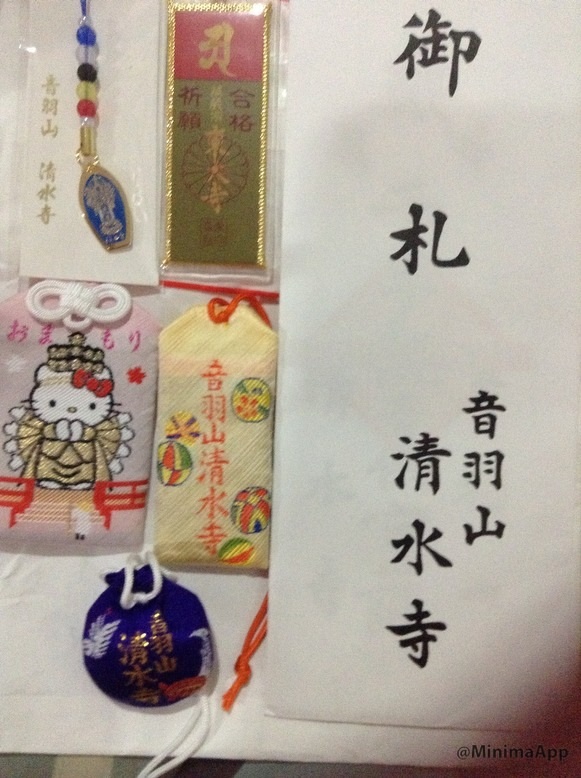 音羽山 清水寺
合格
祈願
東大寺
おまもり
音羽山清水寺
音羽山
清水寺
御札
音羽山
清水寺
@MinimaApp